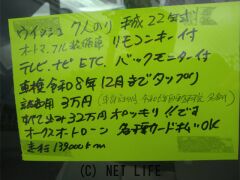 ウイッシュ 7人のり 平成22年式
オートマ、フル装備 リモコンキー付
テレビ、ナビ ETC. バックモニター付
車検 令和8年12月までタップリ
諸費用3万円
すべて込み32万円ポッキリ!!です
オークスオートローン 各種カード払OK
走行139000km
(C) NET LIFE